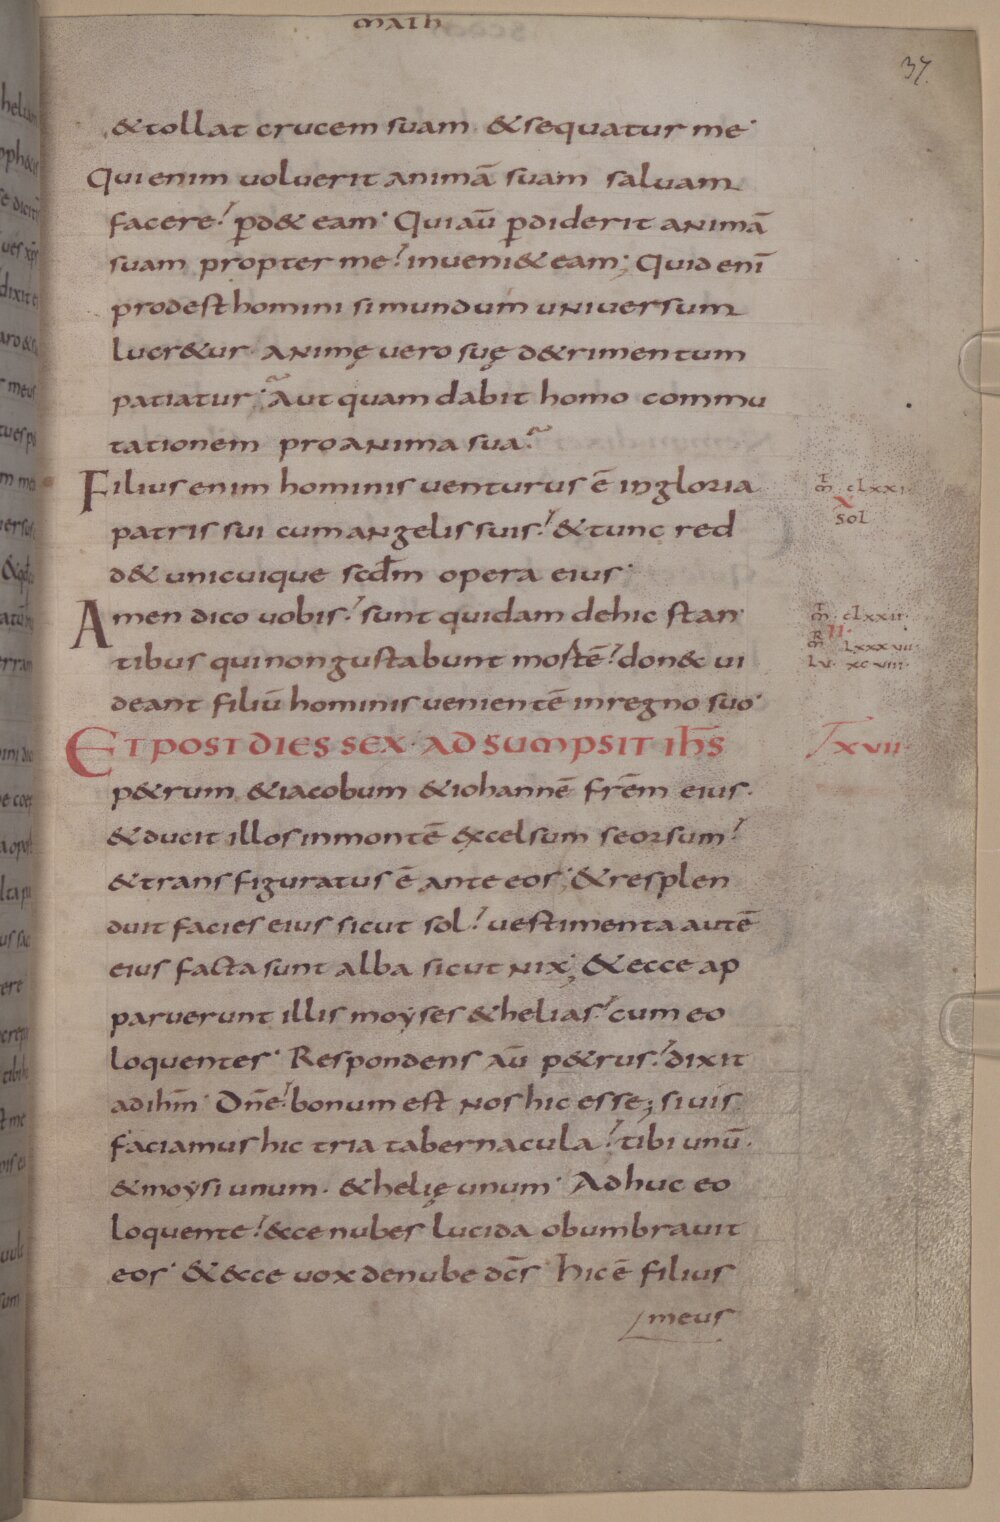 math
37.
& tollat crucem suam & sequatur me·
Qui enim voluerit animā suam salvam
facere? ꝑd& eam· Qui aū ꝑdiderit animā
suam propter me? inveni& eam; Quid enī
prodest homini si mundum universum
lucr&ur· animę vero suę d&rimentum
patiatur· Aut quam dabit homo commu
tationem pro anima sua·
Filius enim hominis venturus ē in gloria
patris sui cum angelis suis? & tunc red
d& unicuique scdm̄ opera eius·
Amen dico vobis? sunt quidam de hic stan
tibus qui non gustabunt mortē? donec vi
deant filiū hominis venientē in regno suo·
ET POST DIES SEX· ADSUMPSIT IHS̄
p&rum & iacobum & iohannē frēm eius·
& ducit illos in montē excelsum seorsum?
& transfiguratus ē ante eos; & resplen
duit facies eius sicut sol? vestimenta autē
eius facta sunt alba sicut nix; & ecce ap
paruerunt illis moyses & helias? cum eo
loquentes· Respondens aū p&rus? dixit
ad ihm̄· Dn̄e? bonum est nos hic esse; si vis
faciamus hic tria tabernacula? tibi unū·
& moysi unum· & helię unum· Adhuc eo
loquente? ecce nubes lucida obumbravit
eos· & ecce vox de nube dcs̄· Hic ē filius
meus
m̄ clxxi
x
sol
m̄ clxxii
II
m̄ lxxxvii
lu· xcviii·
xvii·